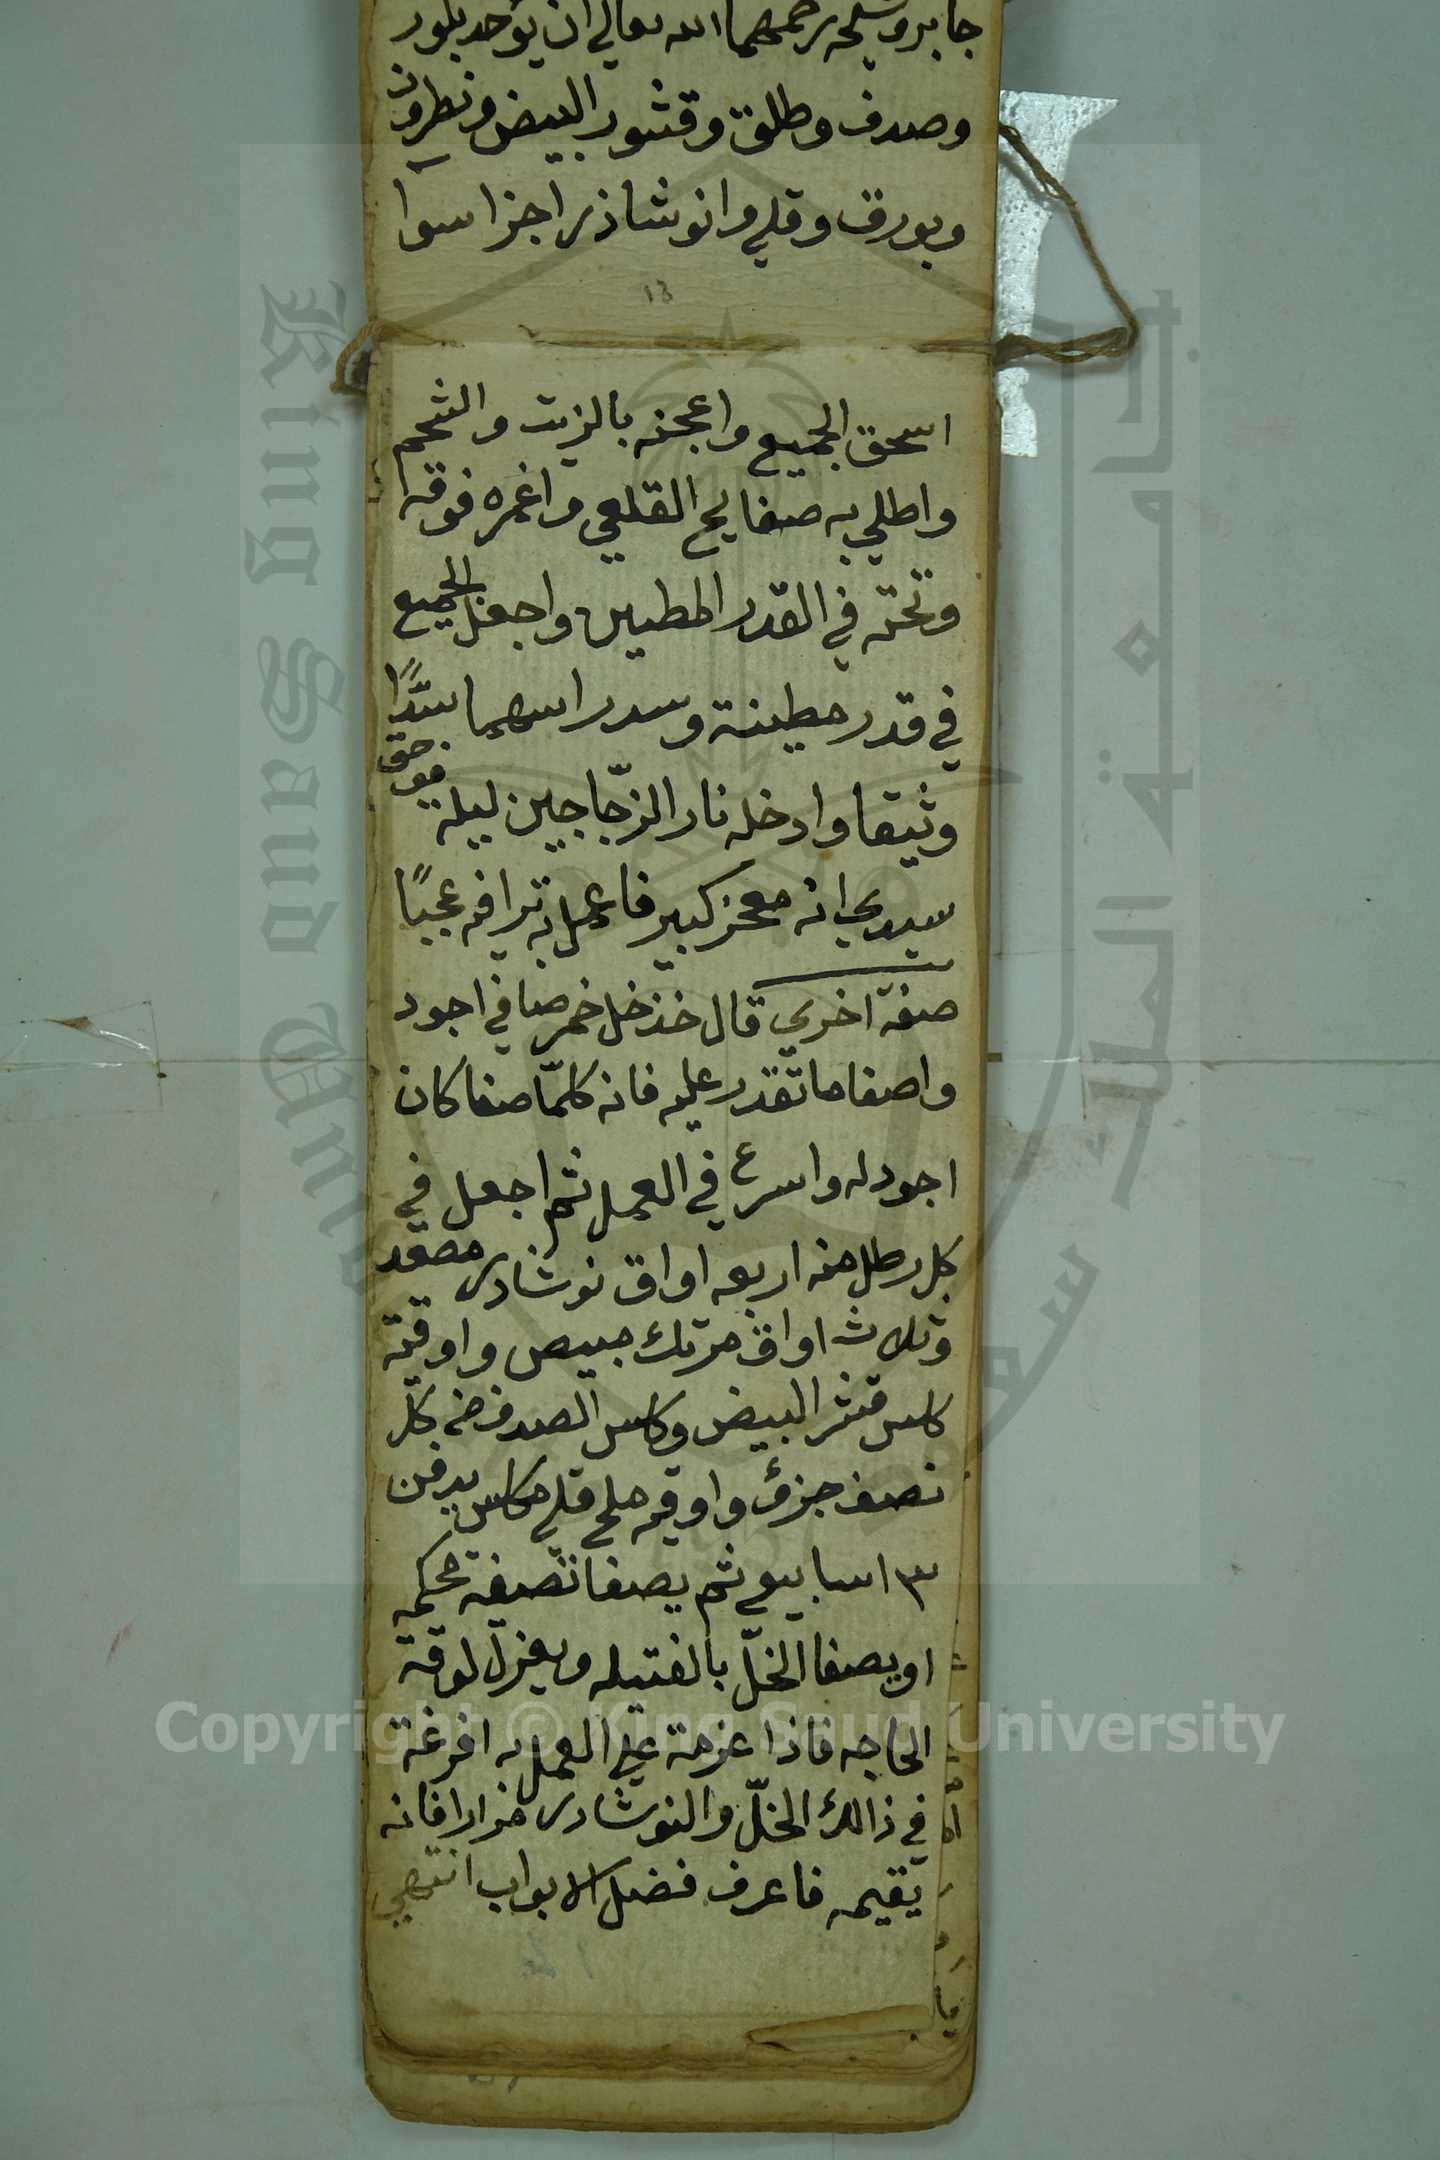 جابر وشيخه رحمهما الله تعالي ان يؤخذ بلور
وصدف وطلق وقشور البيض ونطرون
وبورق وقلي وانوشاذر اجزا سوآ
١٤
اسحق الجميع واعجنه بالزيت والشحم
واطلي به صفايح القلعي واغمره فوقه
وتحته في القدر المطين واجعل الجميع
في قدر مطينة وسد راسهما سدًّا
وثيقا وادخله نار الزجّاجين ليلة فوحق
سيدي انه معجز كبير فاعمل به تر افه عجبًا
صفة اخري قال خذ خل خمر صافي اجود
واصفا ما تقدر عليه فانه كلمّا صفا كان
اجود له واسرع في العمل ثم اجعل في
كل رطل منه اربعه اواق نوشادر مصعد
وثلاث اواق مرتك مبيض واوقية
كلس قشر البيض وكلس الصدف من كلّ
نصف جزؤ واوقيه ملح قلي مكلس يدفن
٣ اسابيع ثم يصفا تصفية محكمه
او يصفا الخلّ بالفتيله ويعزل لوقة
الحاجه فاذا عزمة علي العمل به افرغة
في ذالك الخلّ والنوشادر مرارا فانه
يقيمه فاعرف فضل الابواب انتهي
Copyright © King Saud University
King Saud University
جامعة الملك سعود
1957